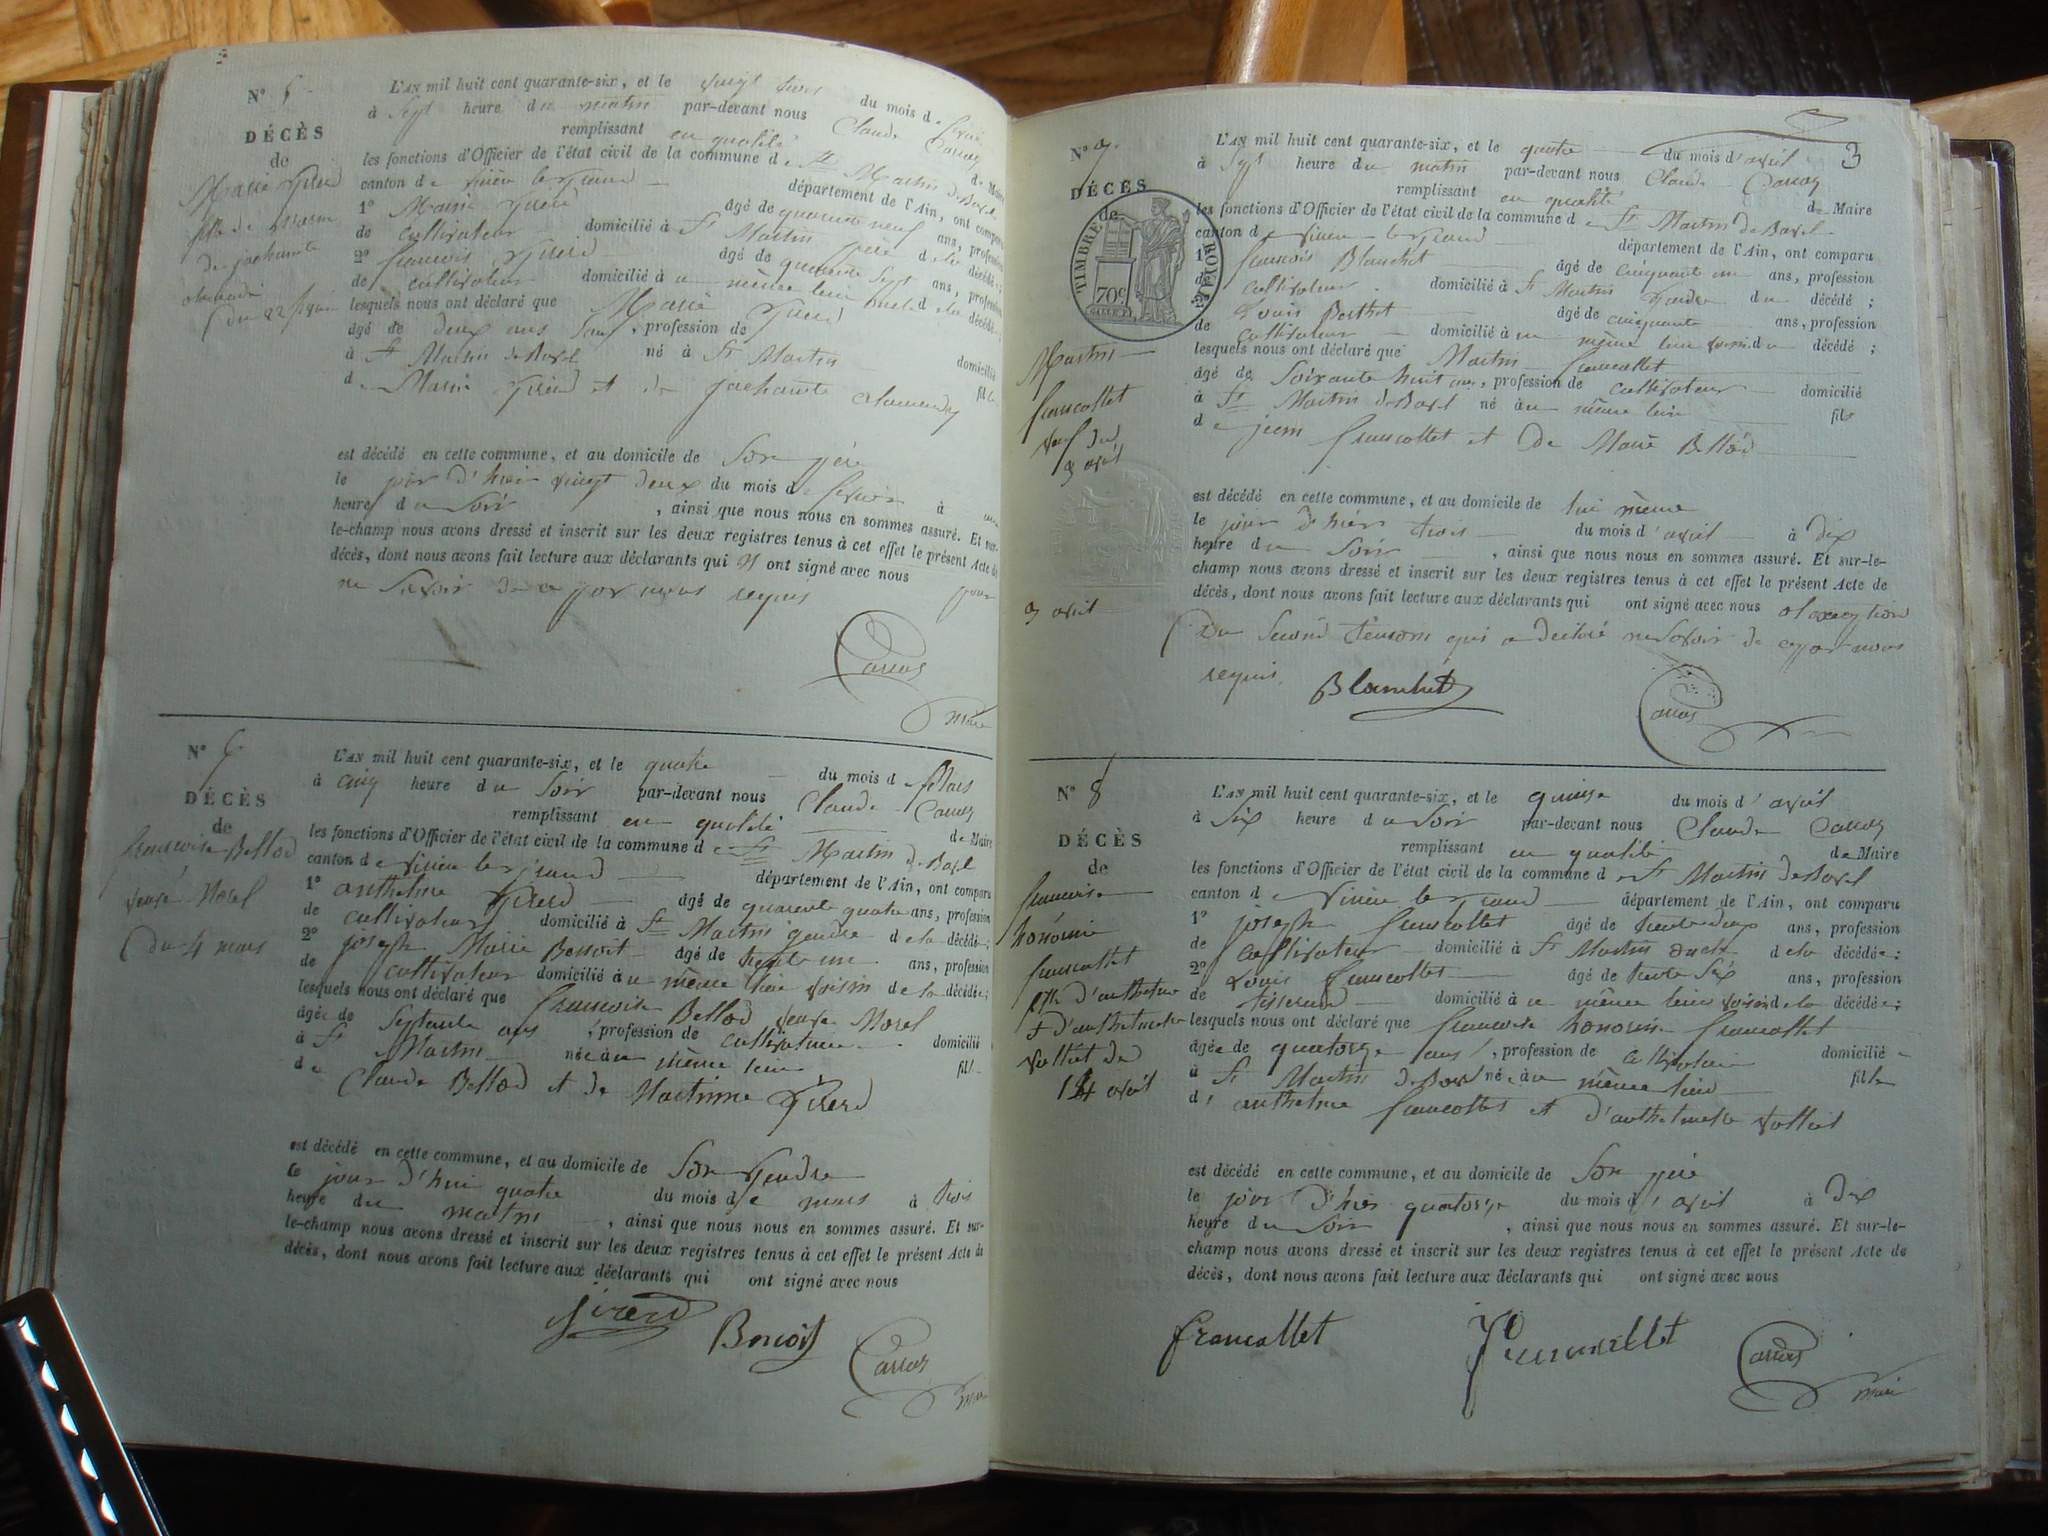 N° 5
DÉCÈS
de
Marie
du 22
L'AN mil huit cent quarante-six, et le vingt trois du mois de
à Sept heure du matin par-devant nous Claude
remplissant en qualité de Maire
les fonctions d'Officier de l'état civil de la commune de St Martin de Bavel
canton de virieu le grand département de l'Ain, ont comparu
1° Marie âgé de quarante neuf ans, profession
de cultivateur domicilié à St Martin père de la décédée;
2° francois âgé de quarante Sept ans, profession
de cultivateur domicilié à u même lieu oncle de la décédée;
lesquels nous ont déclaré que Marie
âgé de deux ans , profession de domicilié
à St Martin de Bavel né à St Martin fille
de et de
est décédé en cette commune, et au domicile de Son père
le jour d'hier vingt deux du mois de à une
heure du Soir , ainsi que nous nous en sommes assuré. Et sur-
le-champ nous avons dressé et inscrit sur les deux registres tenus à cet effet le présent Acte de
décès, dont nous avons fait lecture aux déclarants qui n ont signé avec nous pour
ne Savoir de ce par nous requis
maire
N° 6
DÉCÈS
de
francoise Bellod
veuve Morel
du 4 mars
L'AN mil huit cent quarante-six, et le quatre du mois de Mars
à cinq heure du Soir par-devant nous Claude
remplissant en qualité de Maire
les fonctions d'Officier de l'état civil de la commune de St Martin de Bavel
canton de virieu le grand département de l'Ain, ont comparu
1° anthelme âgé de quarante quatre ans, profession
de cultivateur domicilié à St Martin gendre de la décédée;
2° joseph Marie Benoit âgé de trente un ans, profession
de cultivateur domicilié à u même lieu voisin de la décédée;
lesquels nous ont déclaré que francoise Bellod veuve Morel
âgée de Septante ans , profession de cultivatrice domicilié
à St Martin née à u même lieu fill
de Claude Bellod et de Martinne
est décédé en cette commune, et au domicile de Son gendre
le jour d'hui quatre du mois de mars à trois
heure du matin , ainsi que nous nous en sommes assuré. Et sur-
le-champ nous avons dressé et inscrit sur les deux registres tenus à cet effet le présent Acte de
décès, dont nous avons fait lecture aux déclarants qui ont signé avec nous
Benoit
3
N° 7
DÉCÈS
de
TIMBRE ROYAL
70c
Martin
francollet
veuf du
3 avril
3 avril
L'AN mil huit cent quarante-six, et le quatre du mois d'avril
à Sept heure du matin par-devant nous Claude
remplissant en qualité de Maire
les fonctions d'Officier de l'état civil de la commune de St Martin de Bavel
canton de virieu le grand département de l'Ain, ont comparu
1° francois Blanchet âgé de cinquante un ans, profession
de cultivateur domicilié à St Martin gendre du décédé;
2° Louis Berthet âgé de cinquante ans, profession
de cultivateur domicilié à u même lieu voisin du décédé;
lesquels nous ont déclaré que Martin francollet
âgé de Soixante huit ans, profession de cultivateur domicilié
à St Martin de Bavel né à u même lieu fils
de jean francollet et de Marie Bellod
est décédé en cette commune, et au domicile de lui même
le jour d'hier trois du mois d'avril à dix
heure du Soir , ainsi que nous nous en sommes assuré. Et sur-le-
champ nous avons dressé et inscrit sur les deux registres tenus à cet effet le présent Acte de
décès, dont nous avons fait lecture aux déclarants qui ont signé avec nous a l'exception
Du Second témoin qui a declaré ne Savoir de ce par nous
requis.
Blanchet
N° 8
DÉCÈS
de
francoise
honorine
francollet
fille d'anthelme
et d'anthelmette
volliet du
14 avril
L'AN mil huit cent quarante-six, et le quinze du mois d'avril
à Six heure du Soir par-devant nous Claude
remplissant en qualité de Maire
les fonctions d'Officier de l'état civil de la commune de St Martin de Bavel
canton de virieu le grand département de l'Ain, ont comparu
1° joseph francollet âgé de trente deux ans, profession
de cultivateur domicilié à St Martin oncle de la décédée;
2° Louis francollet âgé de trente Six ans, profession
de tisserand domicilié à u même lieu voisin de la décédée;
lesquels nous ont déclaré que francoise honorine francollet
âgée de quatorze ans, profession de cultivatrice domicilié
à St Martin de Bavel née à u même lieu fille
d'anthelme francollet et d'anthelmette volliet
est décédé en cette commune, et au domicile de Son père
le jour d'hier quatorze du mois d'avril à dix
heure du Soir , ainsi que nous nous en sommes assuré. Et sur-le-
champ nous avons dressé et inscrit sur les deux registres tenus à cet effet le présent Acte de
décès, dont nous avons fait lecture aux déclarants qui ont signé avec nous
francollet francollet maire